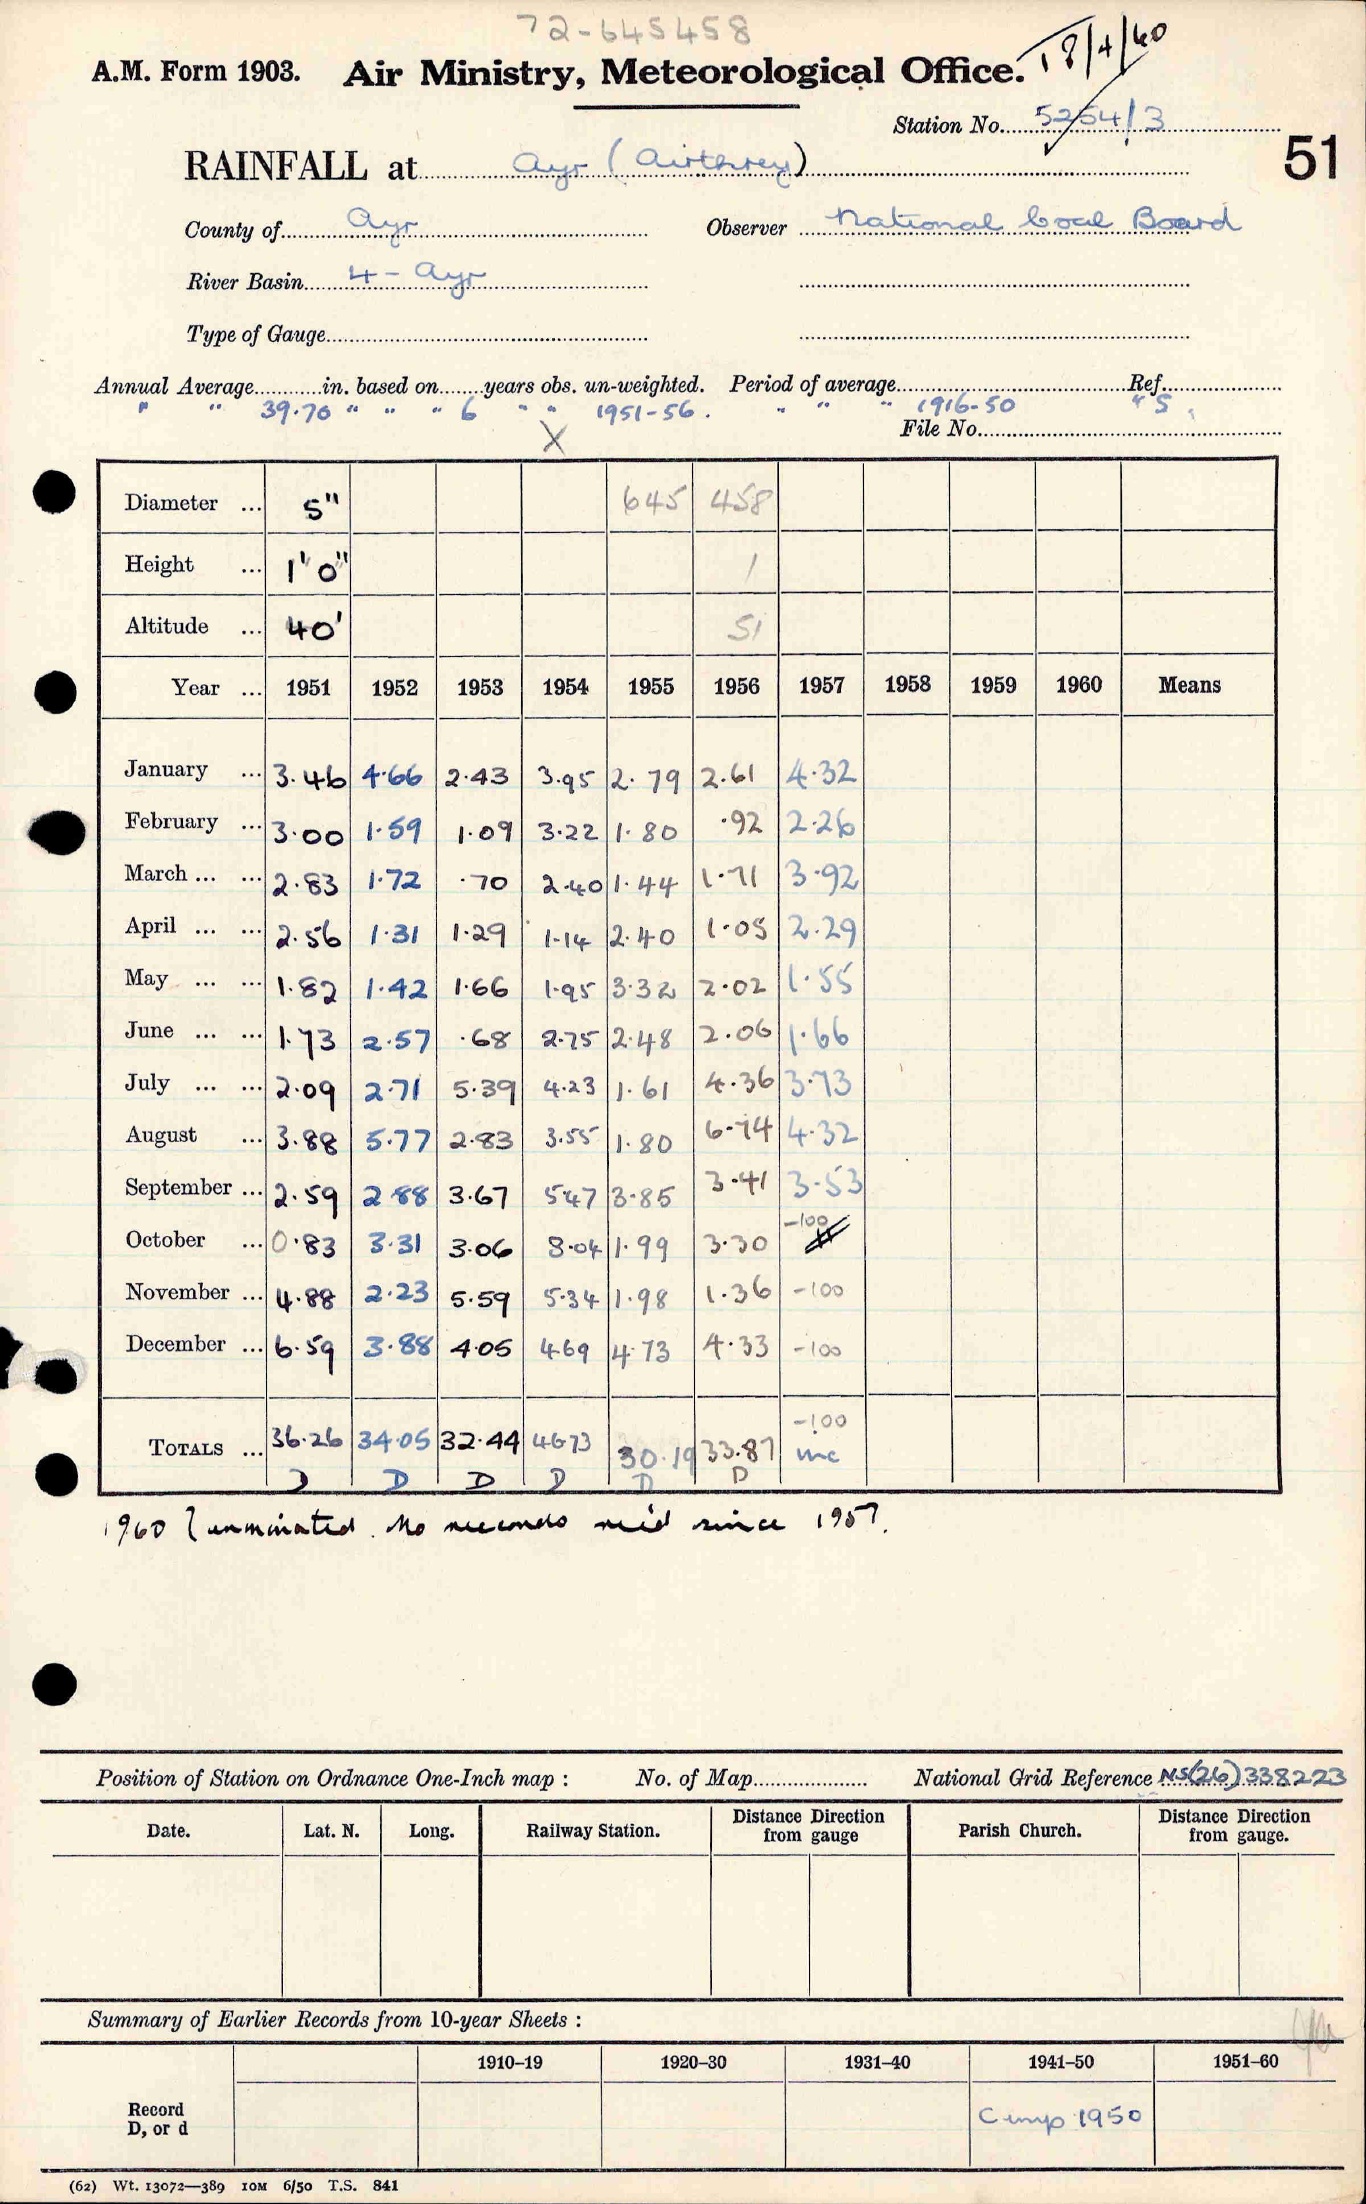 72-645458
A.M. Form 1903. Air Ministry, Meteorological Office. 18/4/60
Station No. 5254/3
51
RAINFALL at Ayr (Airthrey)
County of Ayr Observer National Coal Board
River Basin 4 - Ayr
Type of Gauge
Annual Average in. based on years obs. un-weighted. Period of average Ref.
" " 39.70 " " " 6 " " 1951-56. " " " 1916-50 " S.
File No.
X
Diameter ... 5" 645 458
Height ... 1'0" 1
Altitude ... 40' 51
Year ... 1951 1952 1953 1954 1955 1956 1957 1958 1959 1960 Means
January ... 3.46 4.66 2.43 3.95 2.79 2.61 4.32
February ... 3.00 1.59 1.09 3.22 1.80 .92 2.26
March ... ... 2.83 1.72 .70 2.40 1.44 1.71 3.92
April ... ... 2.56 1.31 1.29 1.14 2.40 1.05 2.29
May ... ... 1.82 1.42 1.66 1.95 3.32 2.02 1.55
June ... ... 1.73 2.57 .68 2.75 2.48 2.06 1.66
July ... ... 2.09 2.71 5.39 4.23 1.61 4.36 3.73
August ... 3.88 5.77 2.83 3.55 1.80 6.74 4.32
September ... 2.59 2.88 3.67 5.47 3.85 3.41 3.53
October ... 0.83 3.31 3.06 8.04 1.99 3.30 -100
November ... 4.88 2.23 5.59 5.34 1.98 1.36 -100
December ... 6.59 3.88 4.05 4.69 4.73 4.33 -100
-100
TOTALS ... 36.26 34.05 32.44 46.73 30.19 33.87 inc
D D D D D D
1960 Terminated. No records rec'd since 1957.
Position of Station on Ordnance One-Inch map : No. of Map National Grid Reference NS(26)338223
Date. Lat. N. Long. Railway Station. Distance from gauge Direction Parish Church. Distance from gauge. Direction
Summary of Earlier Records from 10-year Sheets :
1910-19 1920-30 1931-40 1941-50 1951-60
Record D, or d 1950
(62) Wt. 13072—389 10M 6/50 T.S. 841